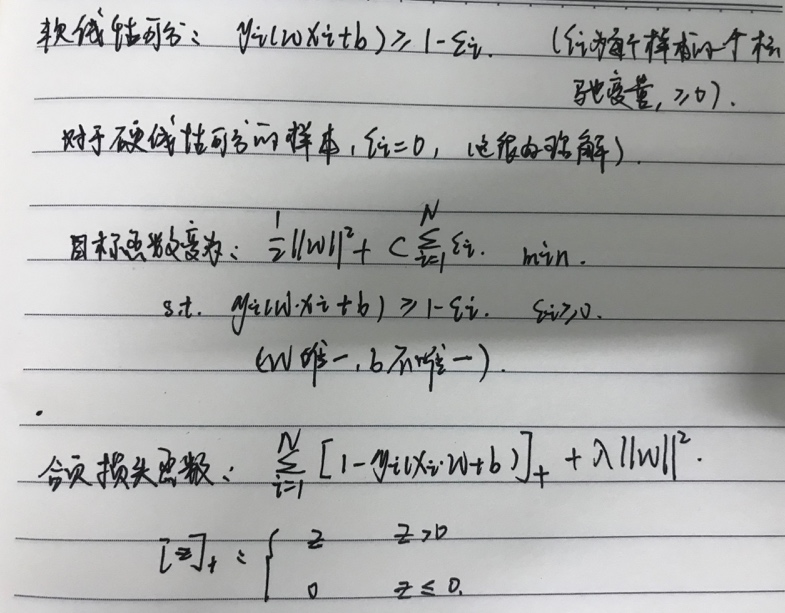 软线性可分: yi(wxi+b) ≥ 1-ξi. (ξi为每个样本的一个松
弛变量, ≥0).
对于硬线性可分的样本, ξi=0, (这很好理解).
目标函数变为: 1/2||w||² + C∑_{i=1}^{N} ξi. min.
s.t. yi(w·xi+b) ≥ 1-ξi. ξi≥0.
(w唯一, b不唯一).
合页损失函数: ∑_{i=1}^{N} [1-yi(xi·w+b)]₊ + λ||w||².
[z]₊ : { z z>0
0 z≤0.